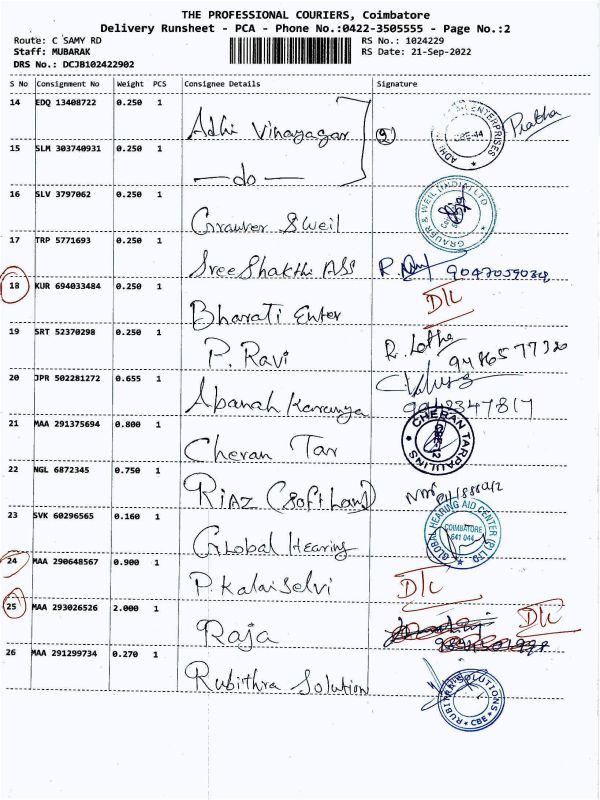 THE PROFESSIONAL COURIERS, Coimbatore
Delivery Runsheet - PCA - Phone No.:0422-3505555 - Page No.:2
Route: C SAMY RD
Staff: MUBARAK
DRS No.: DCJB102422902
RS No.: 1024229
RS Date: 21-Sep-2022
S No Consignment No Weight PCS Consignee Details Signature
14 EDQ 13408722 0.250 1 Adhi Vinayagar Prabha
15 SLM 303740931 0.250 1 — do —
16 SLV 3797062 0.250 1 Grauver & Weil
GRAUER & WEIL (INDIA) LTD
17 TRP 5771693 0.250 1 Sree Shakthi ASS
18 KUR 694033484 0.250 1 Bharati Enter D/L
19 SRT 52370298 0.250 1 P. Ravi R. Latha
9486577320
20 JPR 502281272 0.655 1
21 MAA 291375694 0.800 1 Cheran Tar
CHERAN TARPAULINS CBE-12
22 NGL 6872345 0.750 1 RIAZ (Softland)
23 SVK 60296565 0.160 1 Global Hearing
GLOBAL HEARING AID CENTER (P) LTD
COIMBATORE
641 044
24 MAA 290648567 0.900 1 P. Kalaiselvi D/L
25 MAA 293026526 2.000 1 Raja D/L
26 MAA 291299734 0.270 1 Rubithra Solution
RUBITHRA SOLUTIONS CBE